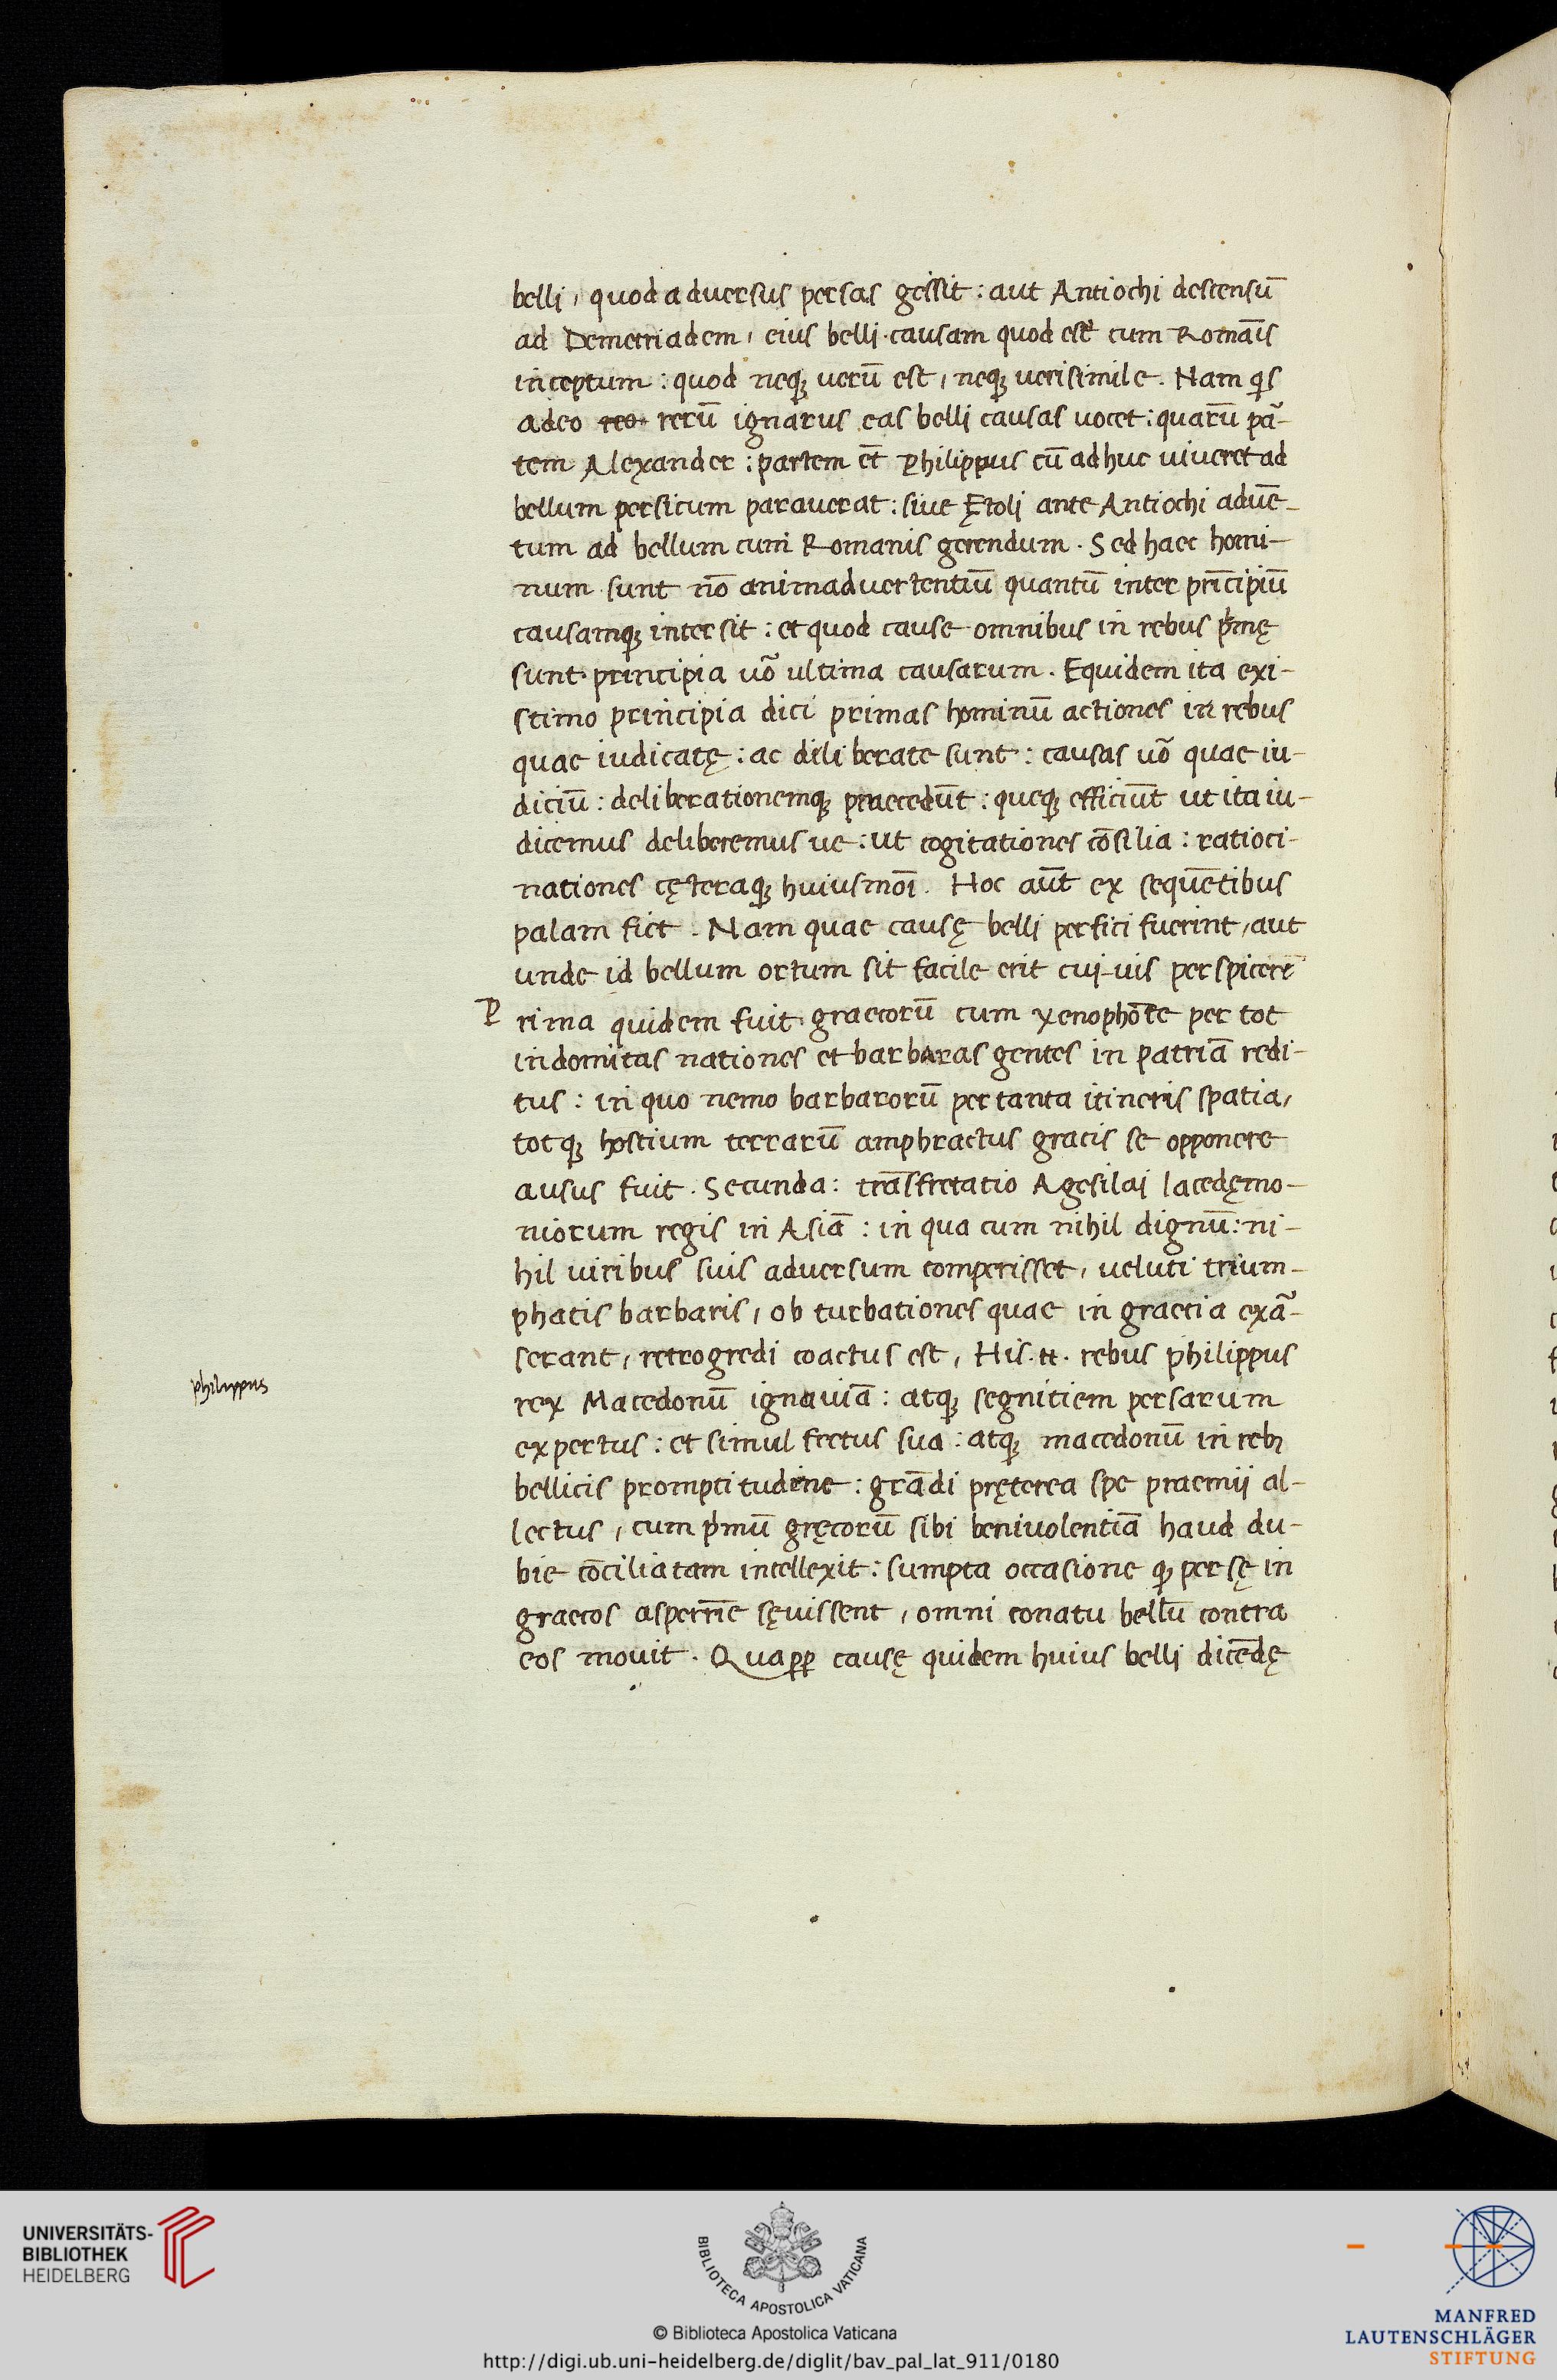 belli, quod adversus persas gessit: aut Antiochi descensū
ad Demetriadem, eius belli causam quod est cum Romāis
inceptum: quod neqꝫ uerū est, neqꝫ uerisimile. Nam qͥs
adeo reo rerū ignarus eas belli causas uocet: quarū pā-
tem Alexander: partem et̄ Philippus cū adhuc uiueret ad
bellum persicum parauerat: siue Ętoli ante Antiochi aduē-
tum ad bellum cum Romanis gerendum. Sed haec homi-
num sunt nō animaduertentiū quantū inter prīcipiū
causamqꝫ intersit: et quod cause omnibus in rebus pͥmę
sunt principia uō ultima causarum. Equidem ita exi-
stimo principia dici primas hominū actiones in rebus
quae iudicatę: ac diliberate sunt: causas uō quae iu-
diciū: deliberationemqꝫ praecedūt: queqꝫ efficiūt ut ita iu-
dicemus deliberemus ue: ut cogitationes cōsilia: ratioci-
nationes cęteraqꝫ huiusmōi. Hoc aūt ex sequētibus
palam fiet. Nam quae causę belli persici fuerint, aut
unde id bellum ortum sit facile erit cui-uis perspicere
Prima quidem fuit graecorū cum xenophōte per tot
indomitas nationes et barbaras gentes in patriā redi-
tus: in quo nemo barbarorū per tanta itineris spatia,
totqꝫ hostium terrarū amphractus gracis se opponere
ausus fuit. Secunda: trāsfretatio Agesilai lacedęmo-
niorum regis in Asiā: in qua cum nihil dignū: ni-
hil uiribus suis aduersum comperisset, ueluti trium-
phatis barbaris, ob turbationes quae in graecia exā-
serant, retrogredi coactus est, His .tt. rebus philippus
philippus
rex Macedonū ignauiā: atqꝫ segnitiem persarum
expertus: et simul fretus sua: atqꝫ macedonū in rebꝫ
bellicis promptitudine: grādi pręterea spe praemii al-
lectus, cum pͥmū gręcorū sibi beniuolentiā haud du-
bie cōciliatam intellexit: sumpta occasione qꝫ persę in
graecos asperrīe sęuissent, omni conatu bellū contra
eos mouit. Quaꝓꝑ causę quidem huius belli dicēdę
UNIVERSITÄTS-
BIBLIOTHEK
HEIDELBERG
BIBLIOTECA APOSTOLICA VATICANA
© Biblioteca Apostolica Vaticana
http://digi.ub.uni-heidelberg.de/diglit/bav_pal_lat_911/0180
MANFRED
LAUTENSCHLÄGER
STIFTUNG